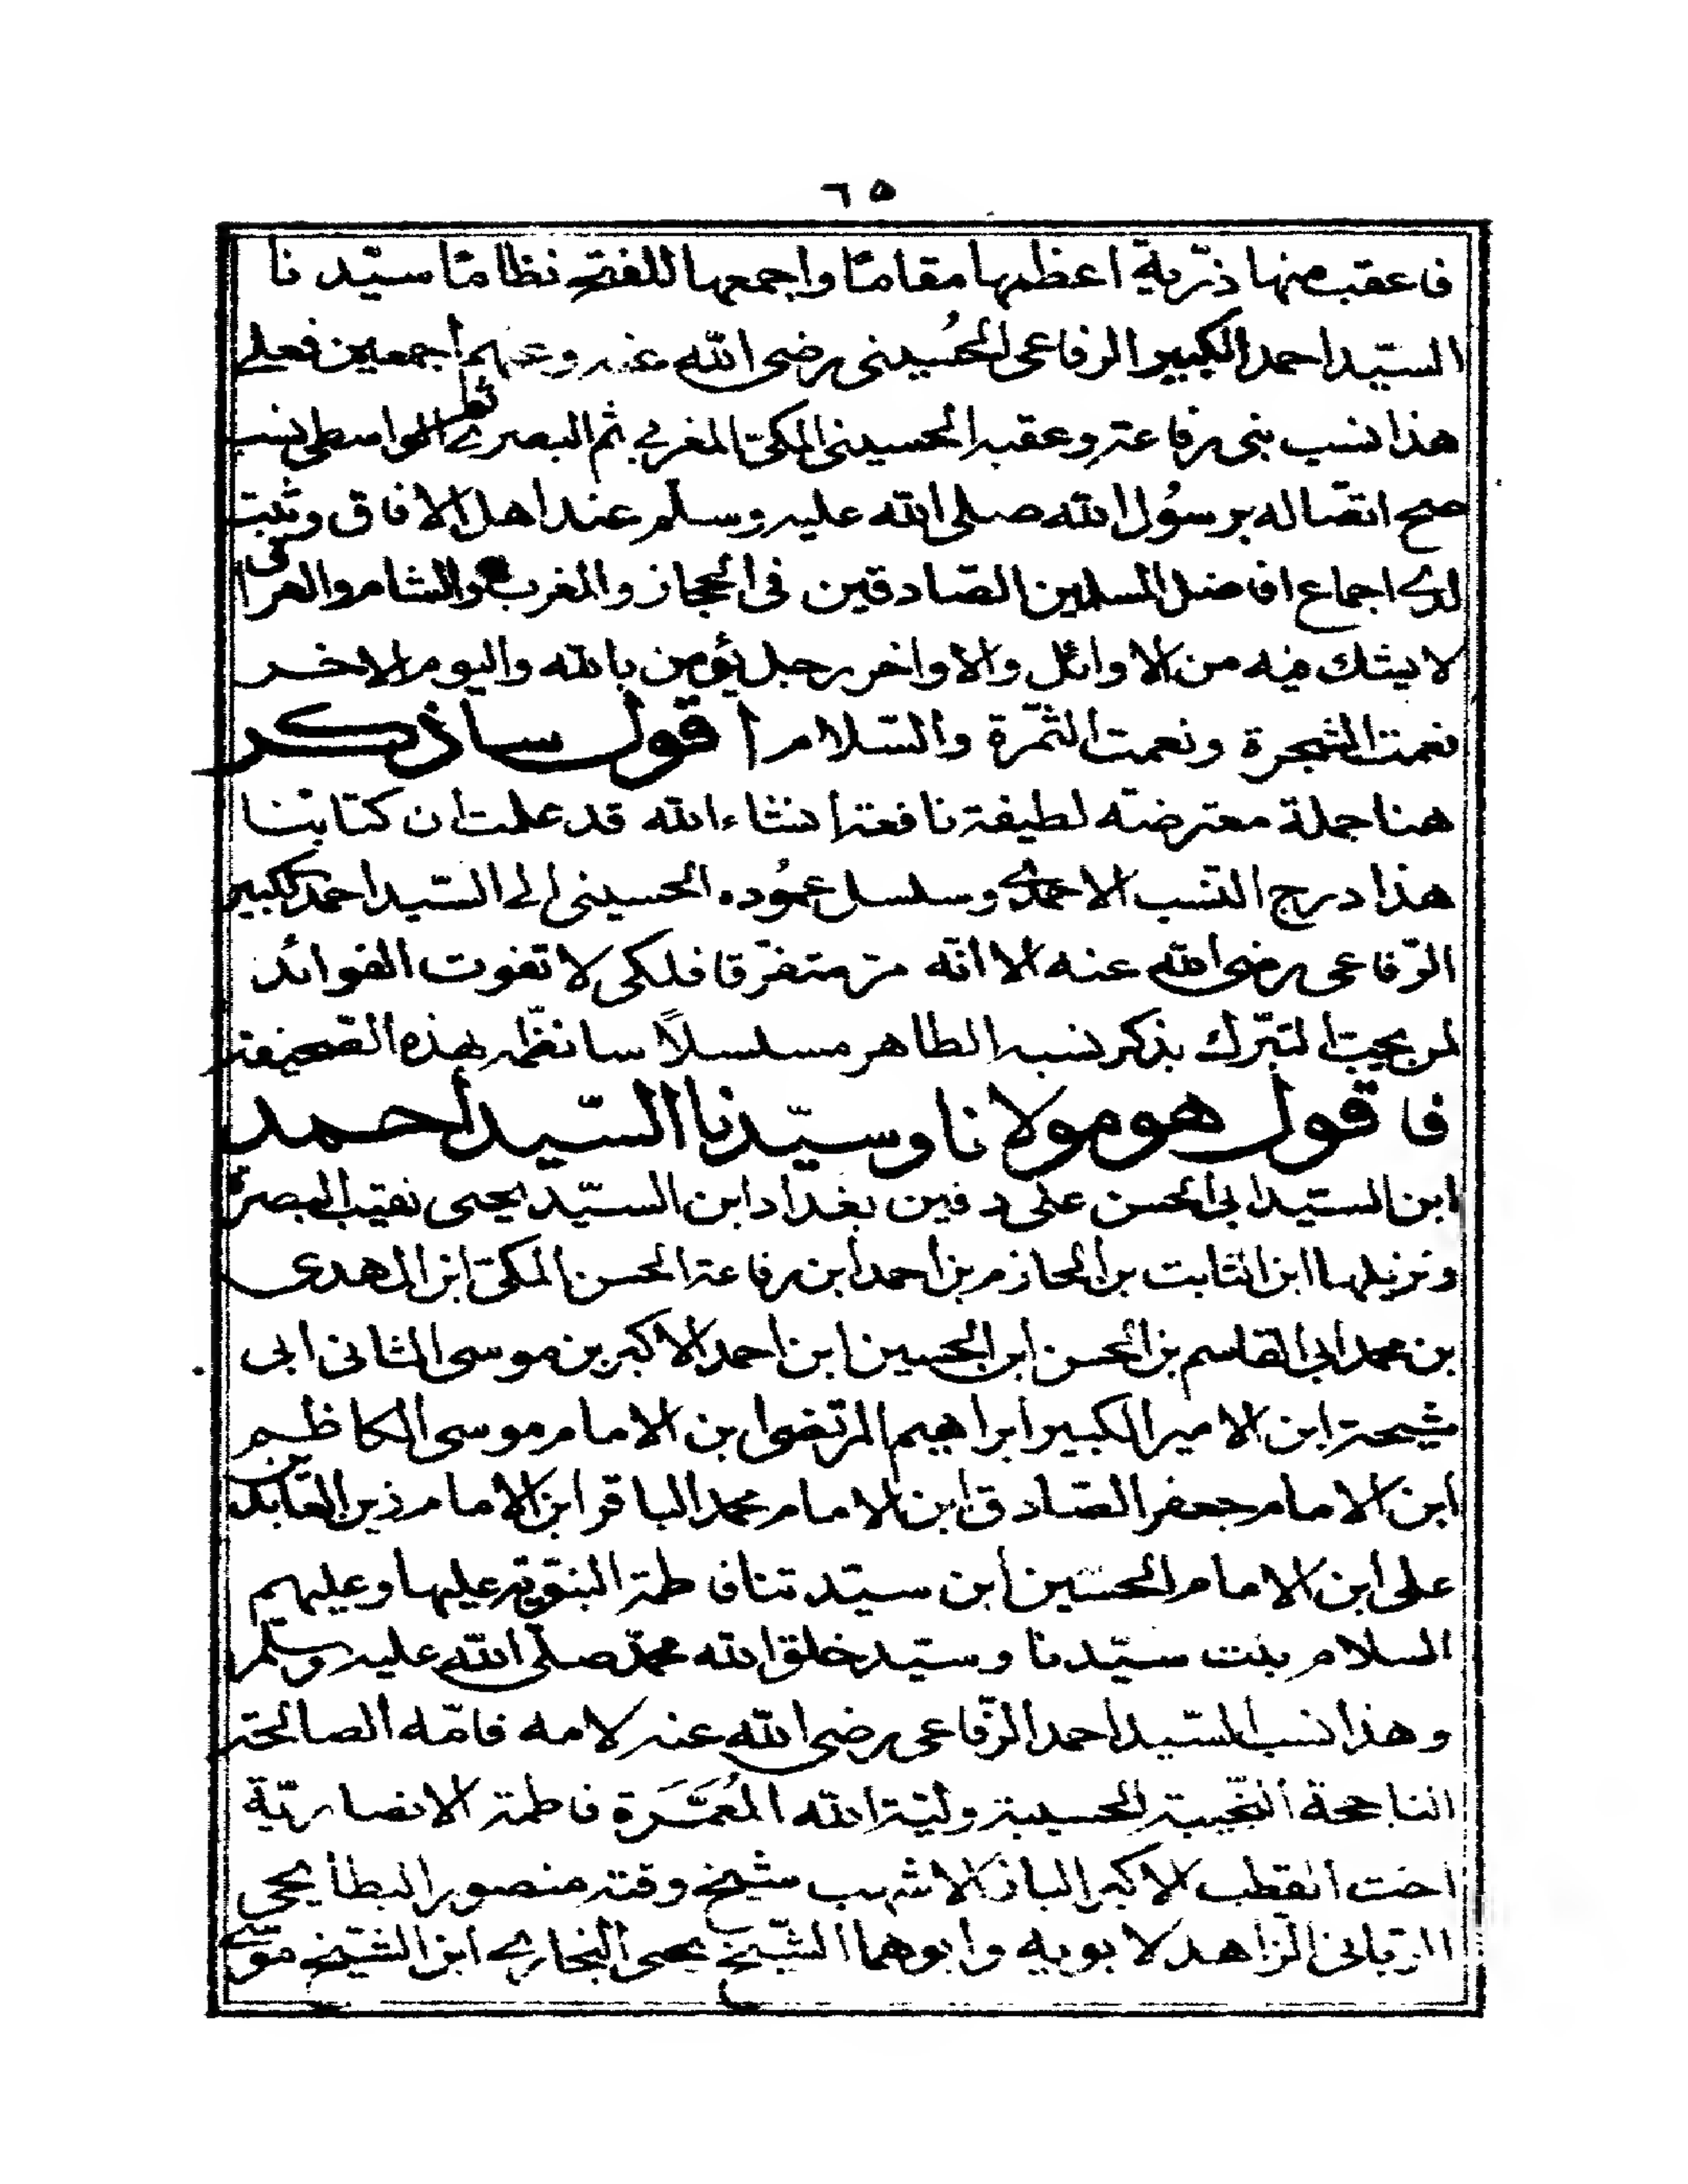 ٦٥
فاعقب منها ذرّية اعظمها مقامًا واجمعها للفتح نظامًا سيّدنا
السيّد احمد الكبير الرفاعى الحُسينى رضى الله عنه وعنهم أجمعين فعلى
هذا نسب بنى رفاعة وعقبه الحسينى المكى المغربي ثم البصرى الواسطى نسب
صح اتصاله برسُول الله صلى الله عليه وسلم عند اهل الافاق وثبت
لدى اجماع افاضل المسلمين الصّادقين فى الحجاز والمغرب والشام والعراق
لا يشك فيه من الاوائل والاواخر رجل يؤمن بالله واليوم الاخر
نعمت الشجرة ونعمت الثمّرة والسّلام أقول ساذكر
هنا جملة معترضة لطيفة نافعة إنشاء الله قد علمت ان كتابنا
هذا درج النسب الاحمدى وسلسل عمُوده الحسينى الى السّيد احمد الكبير
الرّفاعى رضى الله عنه الا انّه مرّ متفرّقا فلكى لا تفوت الفوائد
لمن يحب التبّرك بذكر نسبه الطاهر مسلسلاً سانظّمه بهذه الصّحيفة
فاقول هو مولانا وسيّدنا السّيد أحمد
ابن السيّد ابى الحسن على دفين بغداد ابن السيّد يحيى نقيب البصرة
ونزيلها ابن الثابت بن الحازم بن احمد ابن رفاعة الحسن المكىّ ابن المهدى
بن محمد ابى القاسم بن الحسن ابن الحسين ابن احمد الاكبر بن موسى الثانى ابى
مشيحة ابن الامير الكبير ابراهيم المرتضى ابن الامام موسى الكاظم
ابن الامام جعفر الصّادق ابن الامام محمد الباقر ابن الامام زين العابدين
على ابن الامام الحسّين أبن سيّدتنا فاطمة النبّويّة عليها وعليهم
السلام بنت سيّدنا وسيّد خلق الله محمّد صلّى الله عليه وسلم
وهذا نسب السّيد احمد الرّفاعى رضى الله عنه لامه فامّه الصالحة
الناجحة النّجيبة الحسيبة وليّة الله المُعَمَّرَة فاطمة الانصاريّة
اخت القطب الاكبر الباز الاشهب شيخ وقته منصور البطأيحى
الرّبانى الزّاهد لابويه وابوهما الشّيخ يحيى النجارى ابن الشّيخ موسى